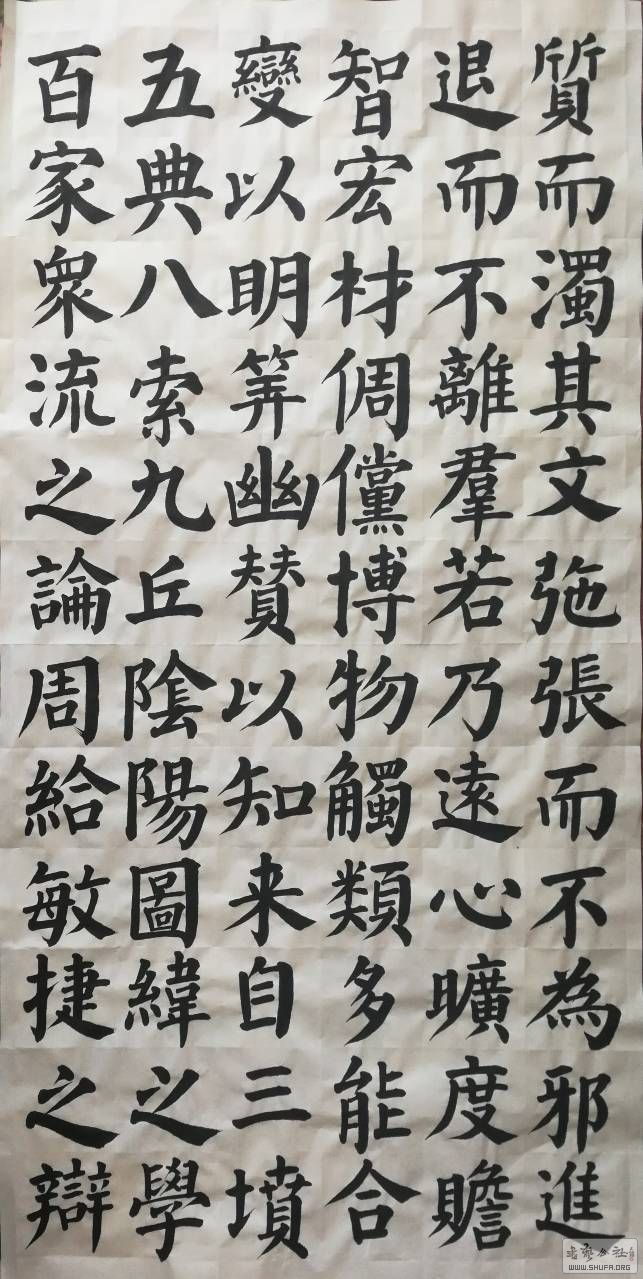 質而濁其文㢮張而不為邪進
退而不離羣若乃遠心曠度贍
智宏材倜儻博物觸類多能合
變以明筭幽賛以知来自三墳
五典八索九丘陰陽圖緯之學
百家眾流之論周給敏捷之辯
WWW.SHUFA.ORG